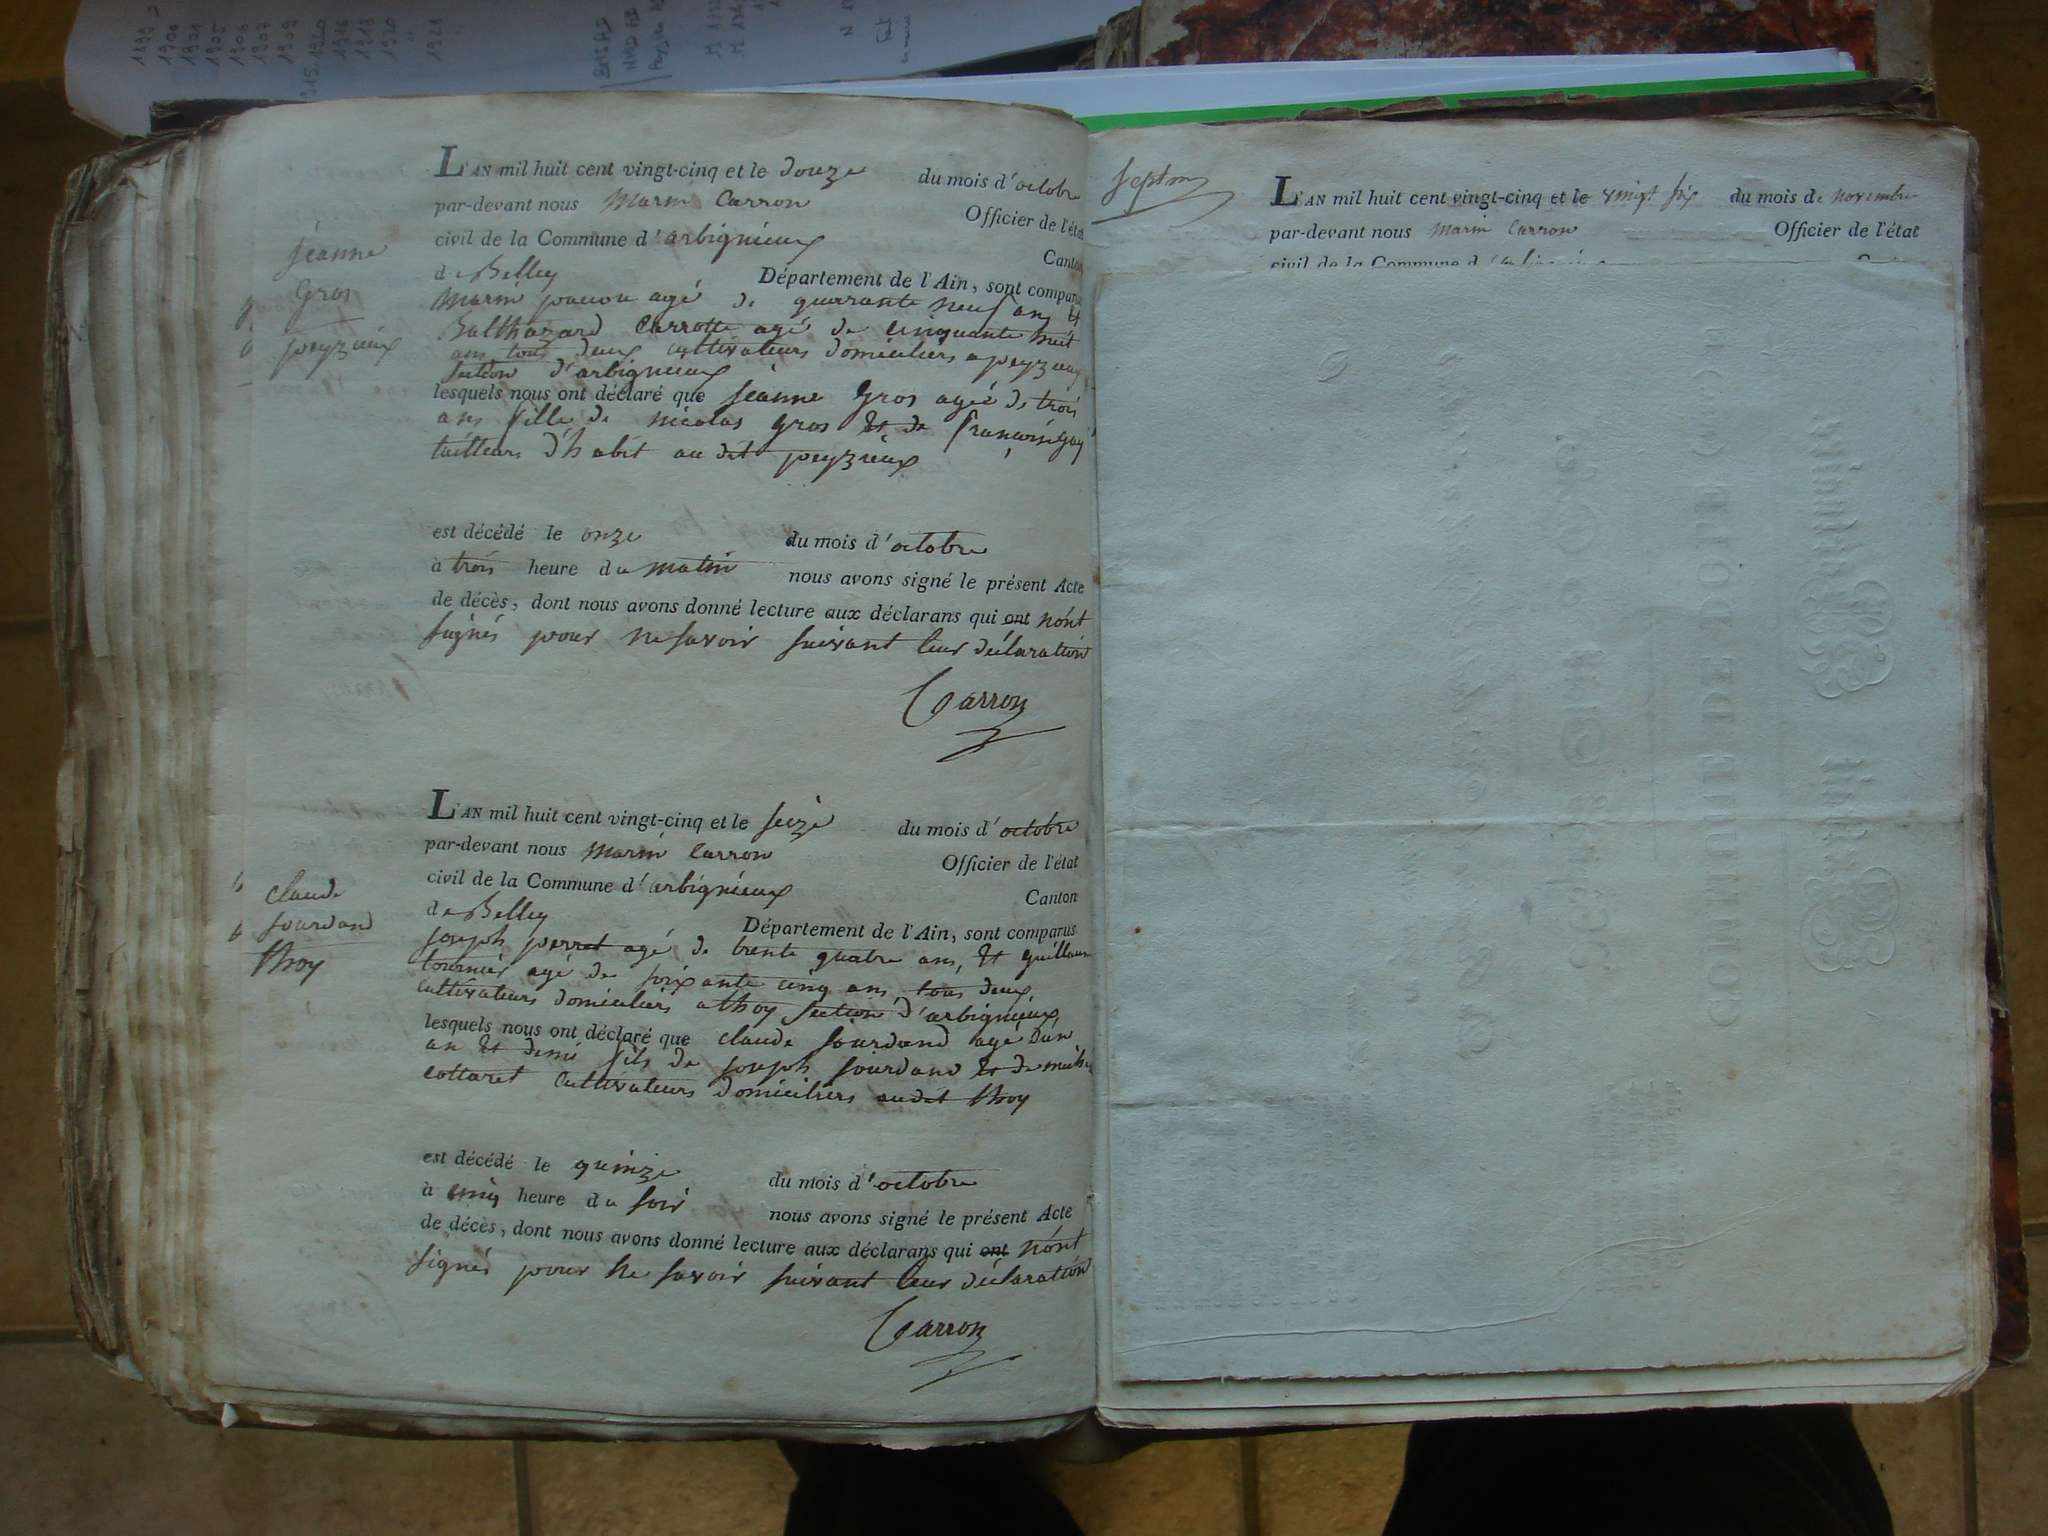 1899
1900
1901
1905
1906
1907
1909
1915.1920
1916
1918
1920
1921
L'AN mil huit cent vingt-cinq et le douze du mois d'octobre
par-devant nous Marin Carron Officier de l'état
civil de la Commune d'arbignieux Canton
de Belley Département de l'Ain, sont comparus
Marin agé de quarante neuf ans Et
Balthazard Carrotte agé de cinquante huit
ans tous deux cultivateurs domiciliers a peyzieux
section d'arbignieux
lesquels nous ont déclaré que jeanne Gros agée de trois
ans fille de nicolas gros Et de françoise guy
tailleurs d'habit au dit peyzieux
est décédé le onze du mois d'octobre
à trois heure du matin nous avons signé le présent Acte
de décès, dont nous avons donné lecture aux déclarans qui ont n'ont
signés pour ne savoir suivant leur déclaration
Carron
jeanne
Gros
peyzieux
L'AN mil huit cent vingt-cinq et le seize du mois d'octobre
par-devant nous Marin Carron Officier de l'état
civil de la Commune d'arbignieux Canton
de Belley Département de l'Ain, sont comparus
joseph perret agé de trente quatre ans, Et guillaume
tournier agé de soixante cinq ans tous deux
cultivateurs domiciliers a thoy section d'arbignieux
lesquels nous ont déclaré que claude jourdand agé d'un
an Et demi fils de joseph jourdand Et de
cottaret cultivateurs domiciliers audit thoy
est décédé le quinze du mois d'octobre
à cinq heure du soir nous avons signé le présent Acte
de décès, dont nous avons donné lecture aux déclarans qui ont n'ont
signés pour ne savoir suivant leur déclaration
Carron
claude
jourdand
thoy
L'AN mil huit cent vingt-cinq et le vingt six du mois de novembre
par-devant nous Marin Carron Officier de l'état
civil de la Commune d'